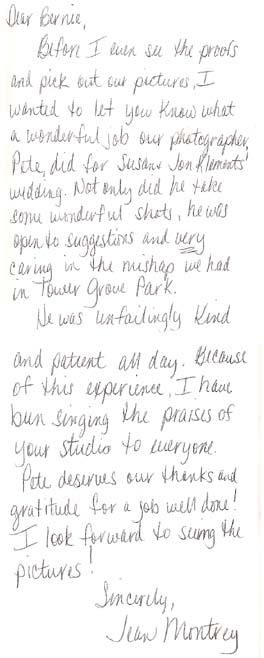 Dear Bernie,
Before I even see the proofs
and pick out our pictures, I
wanted to let you know what
a wonderful job our photographer,
Pete, did for Susan & Jon Klements'
wedding. Not only did he take
some wonderful shots, he was
open to suggestions and very
caring in the mishap we had
in Tower Grove Park.
He was unfailingly kind
and patient all day. Because
of this experience, I have
been singing the praises of
your studio to everyone.
Pete deserves our thanks and
gratitude for a job well done!
I look forward to seeing the
pictures!
Sincerely,
Jean Montrey